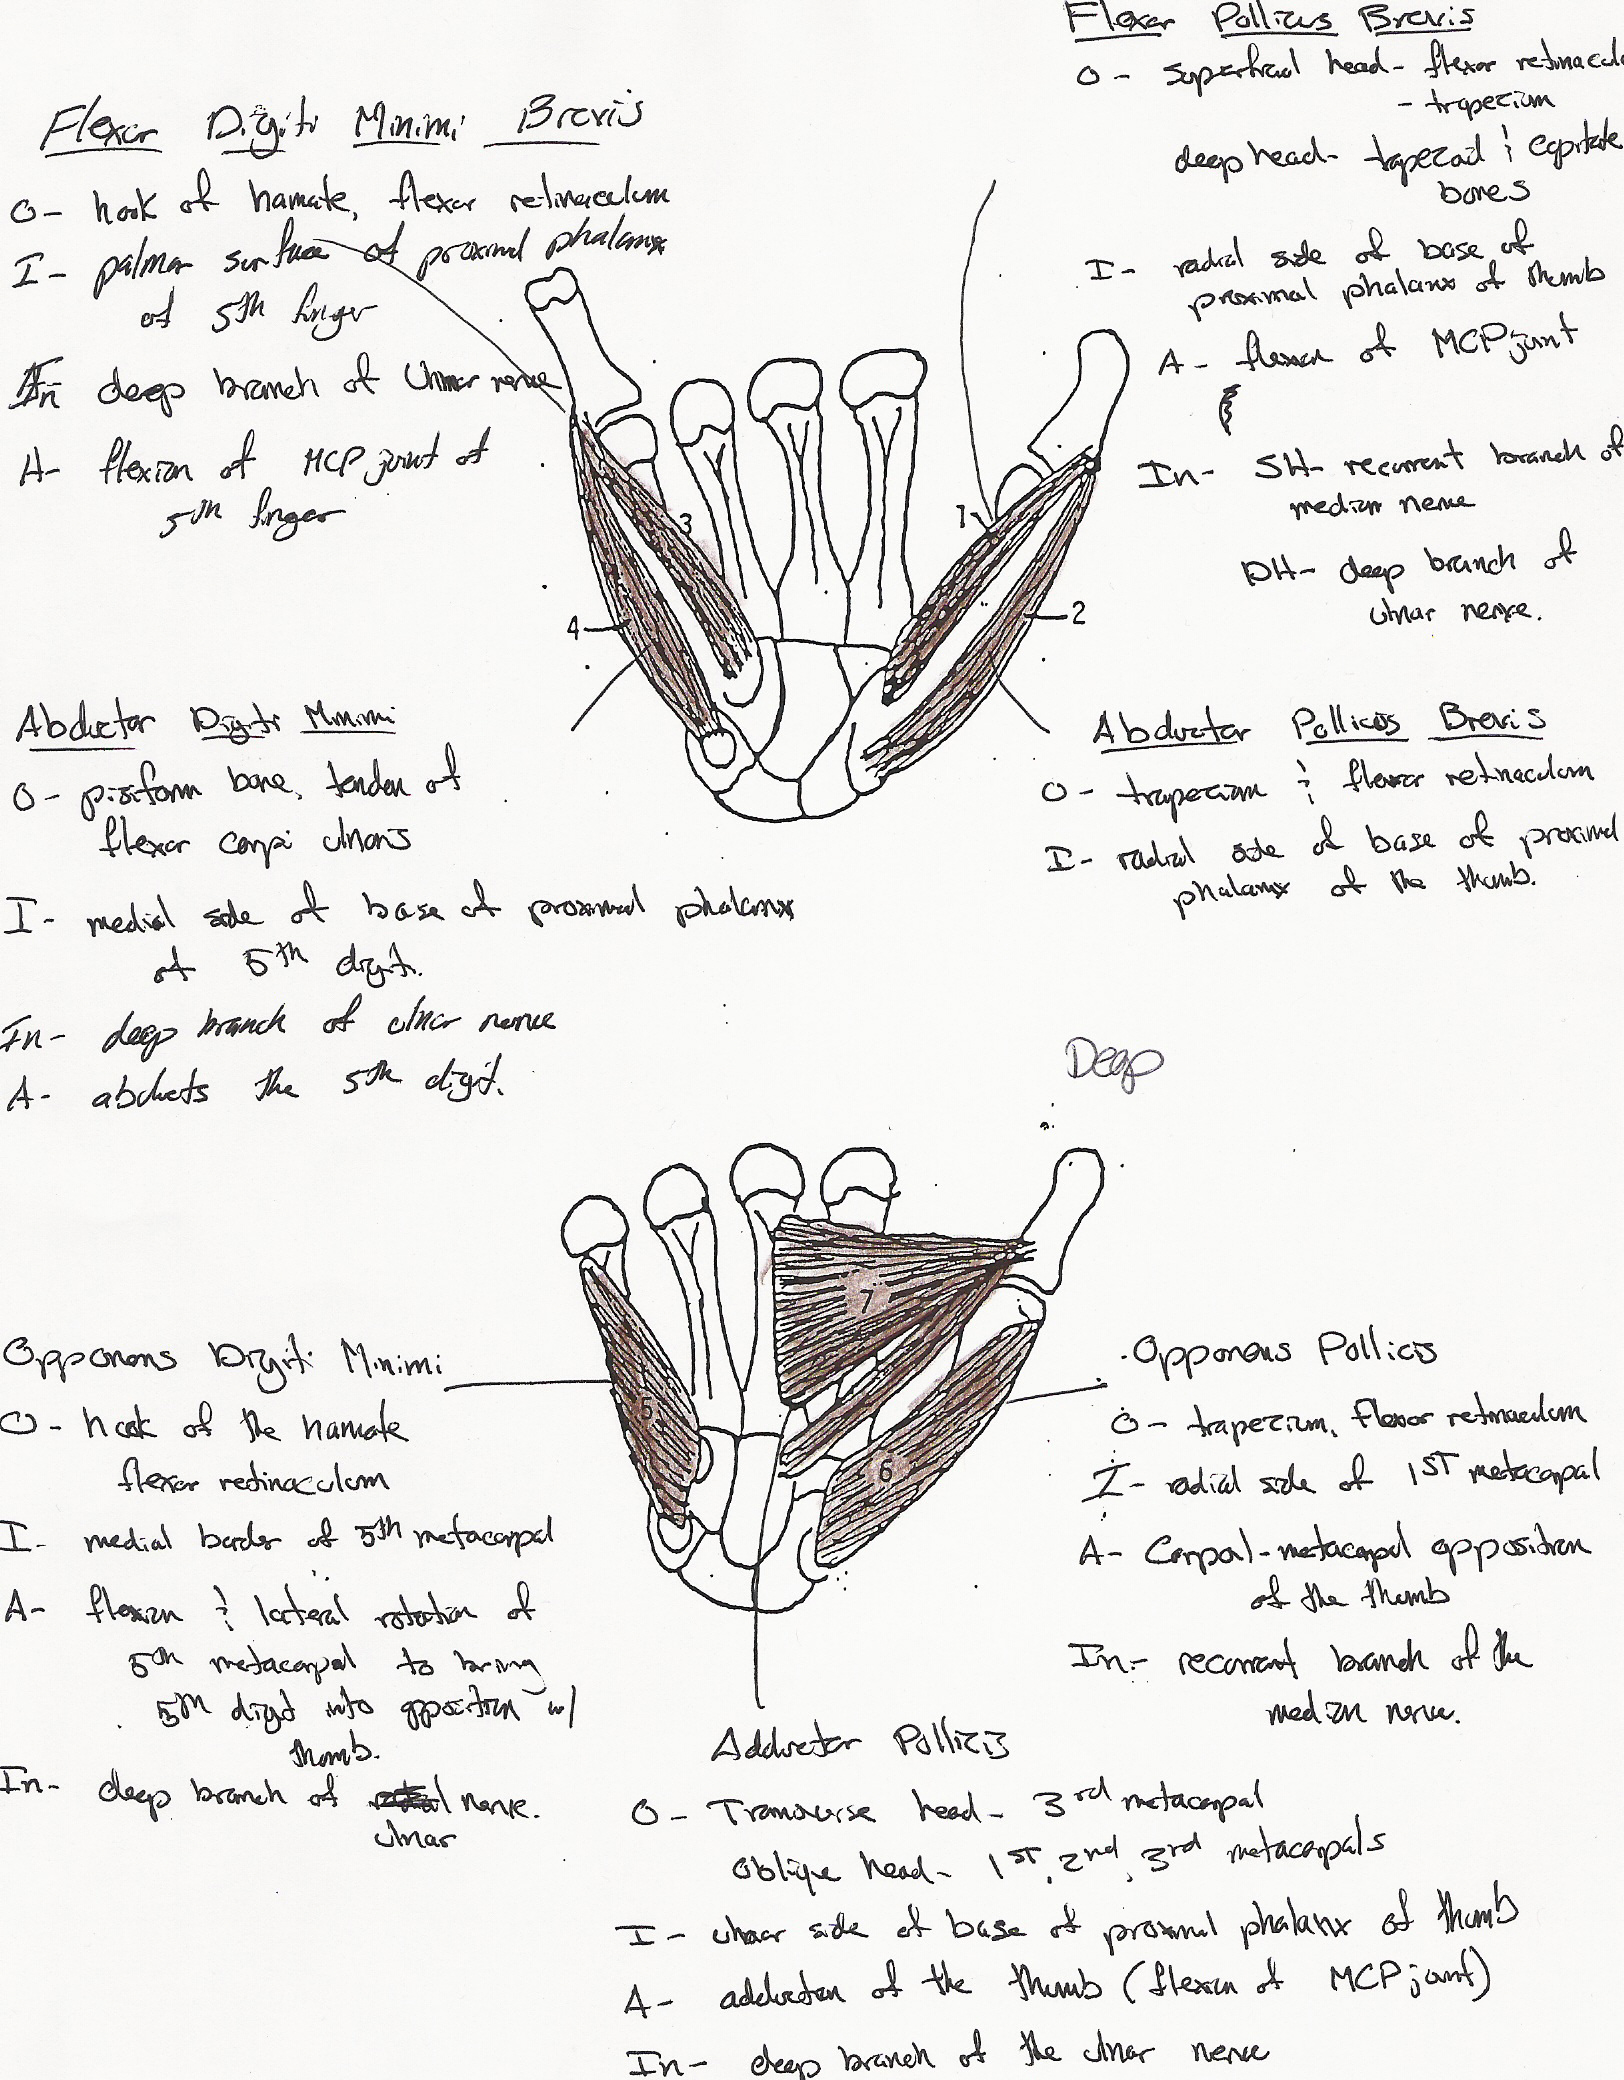 Flexor Pollicus Brevis
O - superficial head - flexor retinacul
- trapezium
deep head - trapezoid & capitate
bones
I - radial side of base of
proximal phalanx of thumb
A - flexion of MCP joint
In - SH - recurrent branch of
median nerve
DH - deep branch of
ulnar nerve.
Flexor Digiti Minimi Brevis
O - hook of hamate, flexor retinaculum
I - palmar surface of proximal phalanx
of 5th finger
In - deep branch of Ulnar nerve
A - flexion of MCP joint of
5th finger
3
1
4
2
Abductor Digiti Minimi
O - pisiform bone, tendon of
flexor carpi ulnaris
I - medial side of base of proximal phalanx
of 5th digit.
In - deep branch of ulnar nerve
A - abducts the 5th digit.
Abductor Pollicus Brevis
O - trapezium & flexor retinaculum
I - radial side of base of proximal
phalanx of the thumb.
Deep
7
5
6
Opponens Digiti Minimi
O - hook of the hamate
flexor retinaculum
I - medial border of 5th metacarpal
A - flexion & lateral rotation of
5th metacarpal to bring
5th digit into opposition w/
thumb.
In - deep branch of nerve.
ulnar
Opponens Pollicis
O - trapezium, flexor retinaculum
I - radial side of 1st metacarpal
A - Carpal-metacarpal opposition
of the thumb
In - recurrent branch of the
median nerve.
Adductor Pollicis
O - Transverse head - 3rd metacarpal
Oblique head - 1st, 2nd, 3rd metacarpals
I - ulnar side of base of proximal phalanx of thumb
A - adduction of the thumb (flexion of MCP joint)
In - deep branch of the ulnar nerve